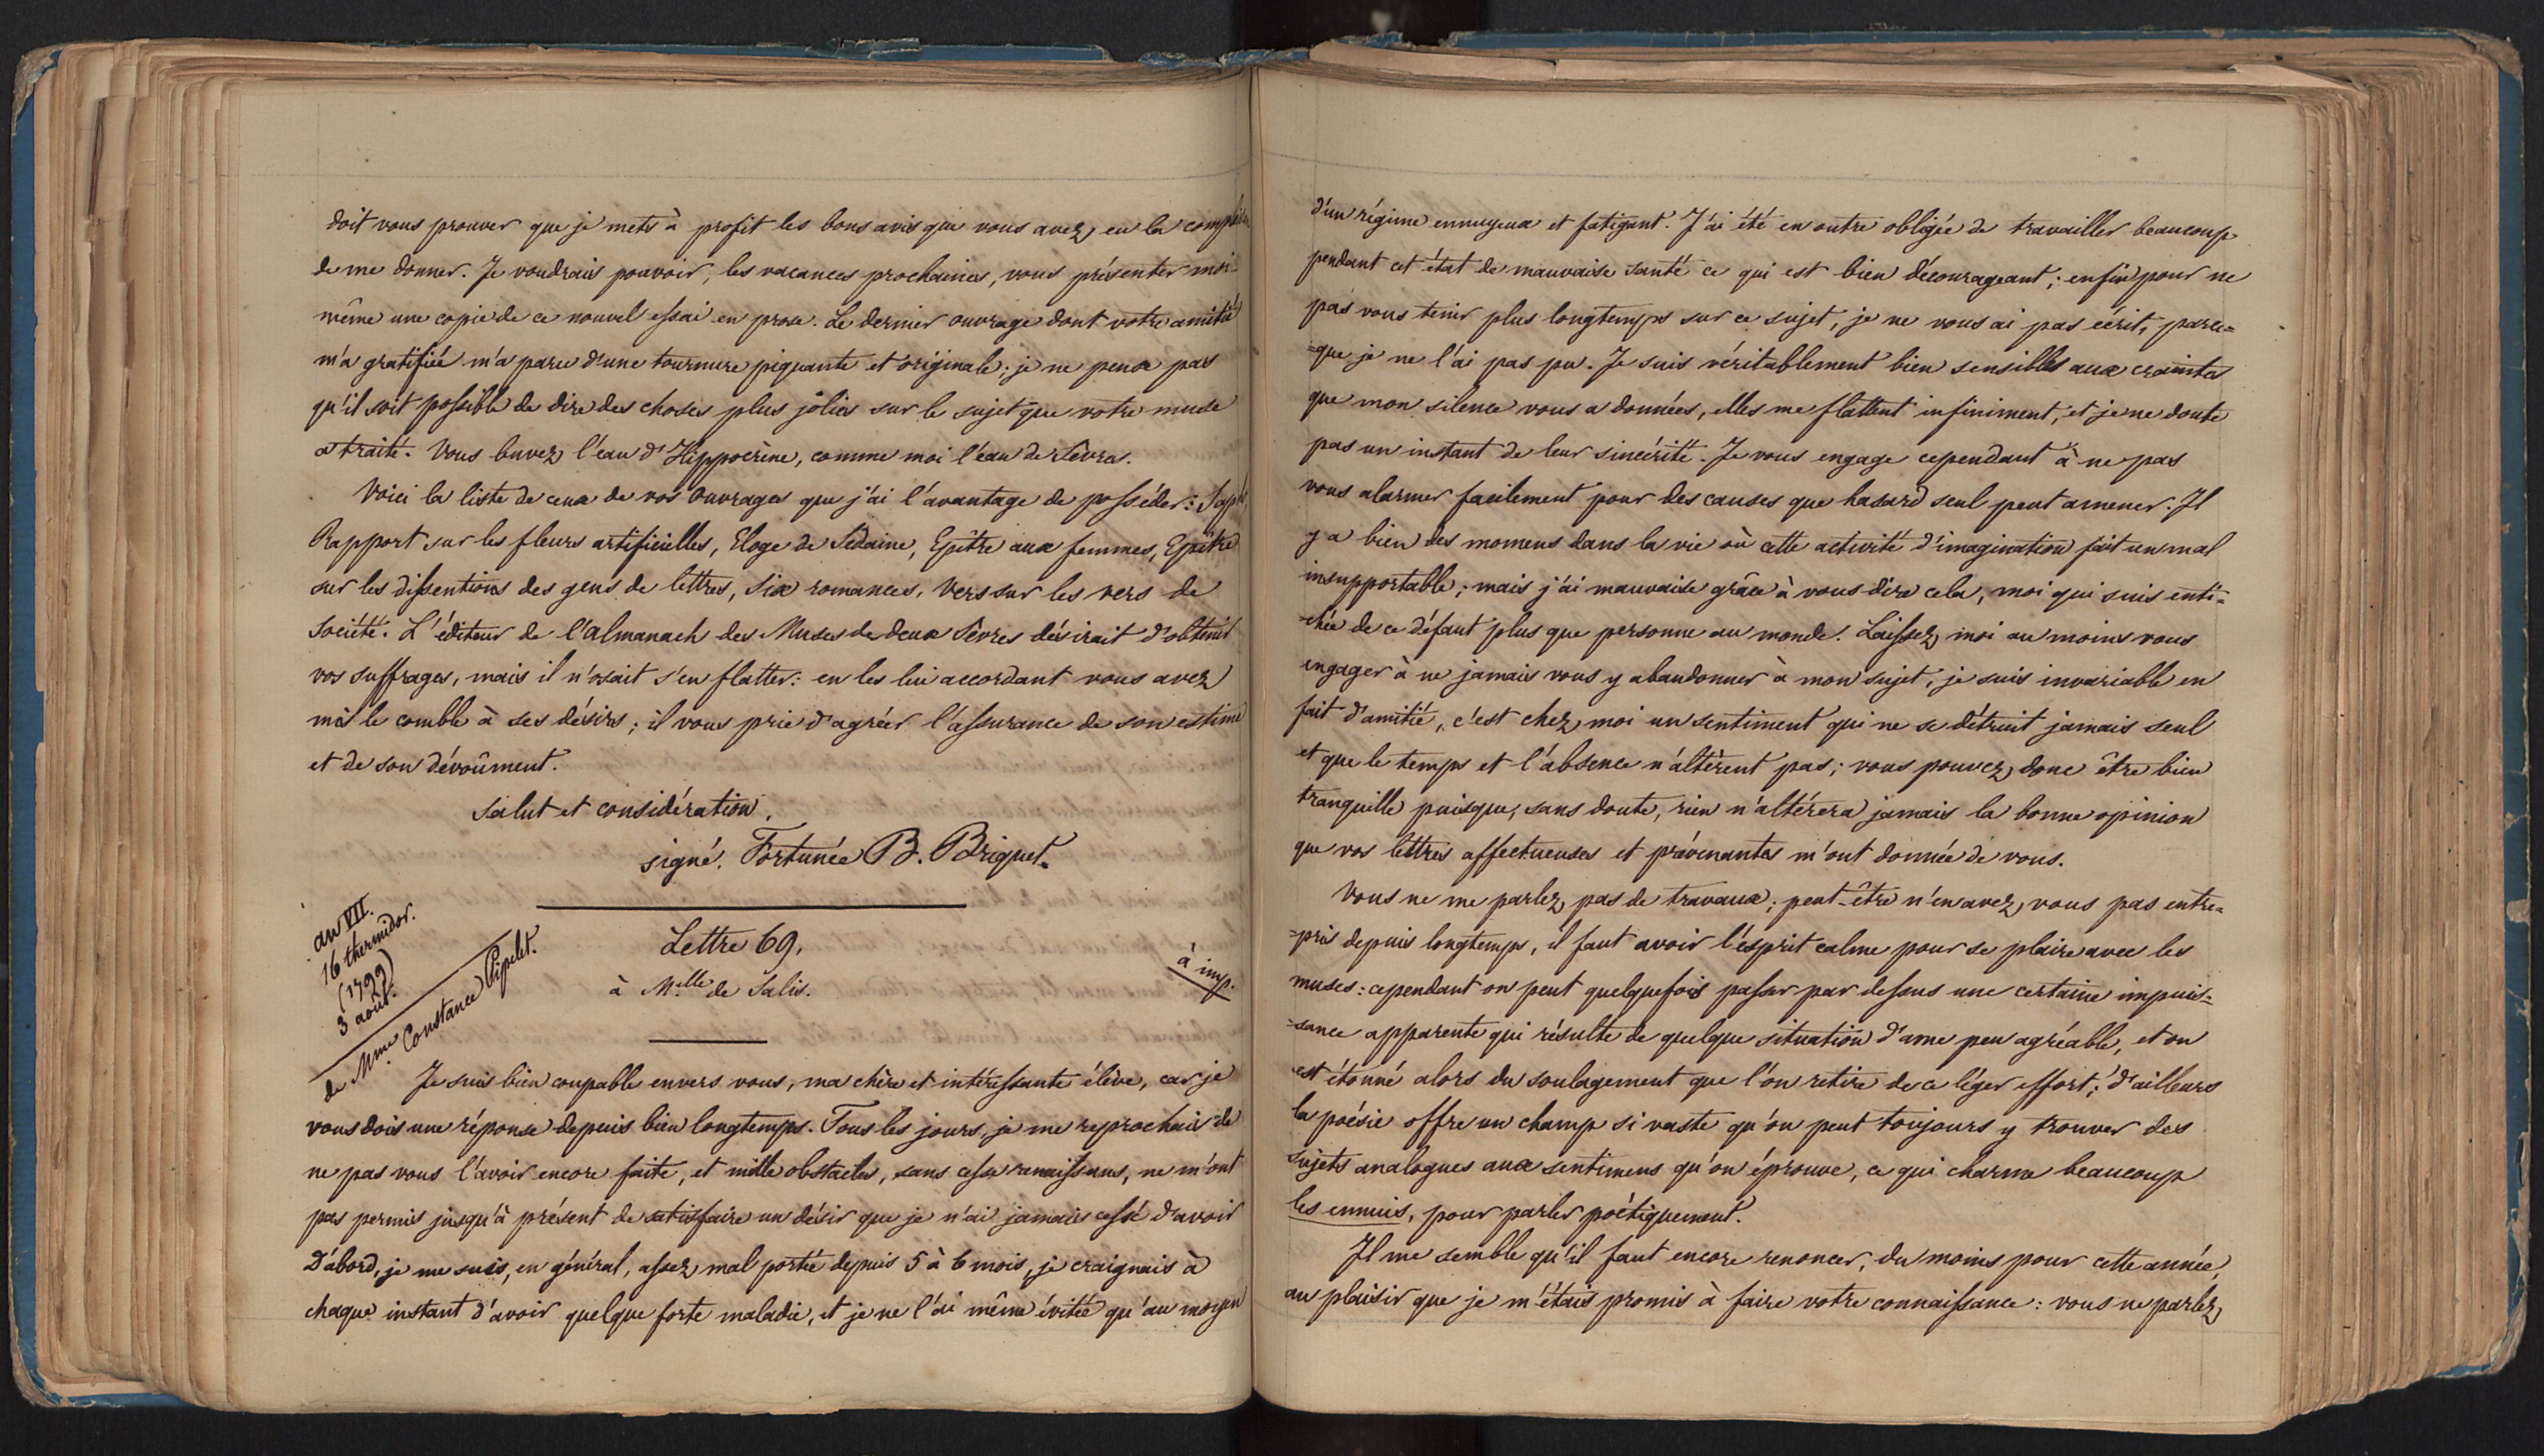 doit vous prouver que je mets à profit les bons avis que vous avez eu la
de me donner. Je voudrais pouvoir, les vacances prochaines, vous présenter moi-
même une copie de ce nouvel essai en prose. Le dernier ouvrage dont votre amitié
m'a gratifiée m'a paru d'une tournure piquante et originale; je ne pense pas
qu'il soit possible de dire des choses plus jolies sur le sujet que votre muse
a traité. Vous buvez l'eau d'Hippocrène, comme moi l'eau de Sèvre.
Voici la liste de ceux de vos ouvrages que j'ai l'avantage de posséder:
Rapport sur les fleurs artificielles, Eloge de Sedaine, Epître aux femmes, Epître
sur les dissentions des gens de lettres, six romances, Vers sur les vers de
Société. L'éditeur de l'almanach des Muses de deux Sèvres désirait d'obtenir
vos suffrages, mais il n'osait s'en flatter: en les lui accordant vous avez
mis le comble à ses désirs; il vous prie d'agréer l'assurance de son estime
et de son dévoûment.
Salut et considération.
signé. Fortunée B. Briquet.
an VII.
16 thermidor.
(1799)
3 août.
de Mme Constance Pipelet.
Lettre 69.
à Mlle de Salis.
à imp.
Je suis bien coupable envers vous, ma chère et intéressante élève, car je
vous dois une réponse depuis bien longtemps. Tous les jours, je me reprochais de
ne pas vous l'avoir encore faite, et mille obstacles, sans cesse renaissans, ne m'ont
pas permis jusqu'à présent de satisfaire un désir que je n'ai jamais cessé d'avoir
D'abord, je me suis, en général, assez mal portée depuis 5 à 6 mois, je craignais à
chaque instant d'avoir quelque forte maladie, et je ne l'ai même évitée qu'au moyen
d'un régime ennuyeux et fatigant. J'ai été en outre obligée de travailler beaucoup
pendant cet état de mauvaise santé ce qui est bien décourageant; enfin pour ne
pas vous tenir plus longtemps sur ce sujet, je ne vous ai pas écrit, parce=
=que je ne l'ai pas pu. Je suis véritablement bien sensible aux craintes
que mon silence vous a données, elles me flattent infiniment, et je ne doute
pas un instant de leur sincérité. Je vous engage cependant à ne pas
vous alarmer facilement pour des causes que hasard seul peut amener. Il
y a bien des momens dans la vie où cette activité d'imagination fait un mal
insupportable; mais j'ai mauvaise grâce à vous dire cela, moi qui suis enti=
=chée de ce défaut plus que personne au monde. Laissez moi au moins vous
engager à ne jamais vous y abandonner à mon sujet, je suis invariable en
fait d'amitié, c'est chez moi un sentiment qui ne se détruit jamais seul
et que le temps et l'absence n'altèrent pas; vous pouvez donc être bien
tranquille puisque, sans doute, rien n'altérera jamais la bonne opinion
que vos lettres affectueuses et prévenantes m'ont donnée de vous.
Vous ne me parlez pas de travaux; peut-être n'en avez vous pas entre=
=pris depuis longtemps, il faut avoir l'esprit calme pour se plaire avec les
muses: cependant on peut quelquefois passer par dessus une certaine impuis=
=sance apparente qui résulte de quelque situation d'ame peu agréable, et on
est étonné alors du soulagement que l'on retire de ce léger effort; d'ailleurs
la poésie offre un champ si vaste qu'on peut toujours y trouver des
sujets analogues aux sentimens qu'on éprouve, ce qui charme beaucoup
les ennuis, pour parler poétiquement.
Il me semble qu'il faut encore renoncer, du moins pour cette année,
au plaisir que je m'étais promis à faire votre connaissance: vous ne parlez